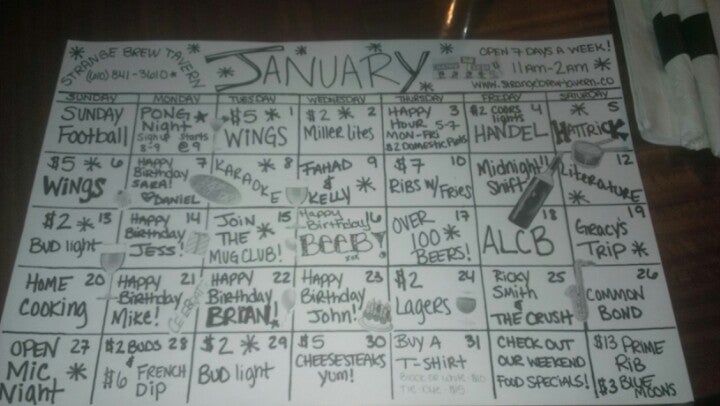 STRANGE BREW TAVERN
(610) 841-3610
JANUARY
OPEN 7 DAYS A WEEK!
11AM-2AM
SUNDAY MONDAY TUESDAY WEDNESDAY THURSDAY FRIDAY SATURDAY
SUNDAY
Football
PONG
Night
Sign up Starts
8-9 @ 9
$5 1
WINGS
$2 2
Miller Lites
HAPPY 3
HOUR 5-7
MON-FRI
$2 DOMESTIC Pints
$2 COORS 4
lights
HANDEL
5
HATTRICK
$5 6
WINGS
HAPPY 7
Birthday
SARA!
DANIEL
8
KARAOKE
FAHAD 9
&
KELLY
$7 10
RIBS W/ FRIES
Midnight!! 11
Shift
12
Literature
$2 13
BUD light
HAPPY 14
Birthday
JESS!
JOIN 15
THE
MUG CLUB!
Happy
Birthday! 16
BEEB!
OVER 17
100
BEERS!
18
ALCB
19
GRACY'S
TRIP
HOME 20
COOKING
HAPPY 21
Birthday
Mike!
CELEBRATE
HAPPY 22
Birthday
BRIAN!
HAPPY 23
Birthday
John!
$2 24
LAGERS
RICKY 25
SMITH
&
THE CRUSH
26
COMMON
BOND
OPEN 27
MIC
Night
$2 BUDS 28
&
$6 FRENCH
DIP
$2 29
BUD light
$5 30
CHEESESTEAKS
yum!
BUY A 31
T-SHIRT
BLACK OR WHITE-$10
TIE-DYE-$15
CHECK OUT
OUR WEEKEND
FOOD SPECIALS!
$13 PRIME
RIB
$3 BLUE
MOONS